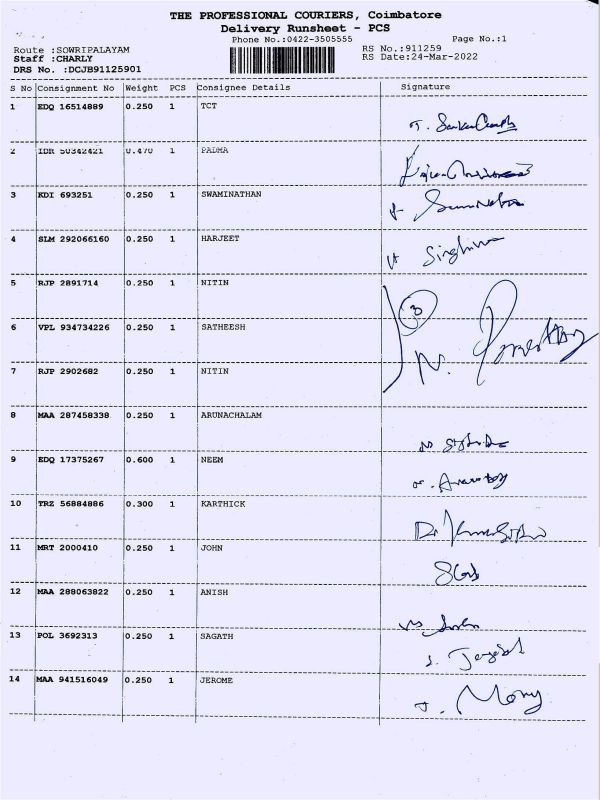 THE PROFESSIONAL COURIERS, Coimbatore
Delivery Runsheet - PCS
Phone No.:0422-3505555 Page No.:1
Route :SOWRIPALAYAM RS No.:911259
Staff :CHARLY RS Date:24-Mar-2022
DRS No. :DCJB91125901
S No Consignment No Weight PCS Consignee Details Signature
1 EDQ 16514889 0.250 1 TCT
2 IDR 50342421 0.470 1 PADMA
3 KDI 693251 0.250 1 SWAMINATHAN
4 SLM 292066160 0.250 1 HARJEET
5 RJP 2891714 0.250 1 NITIN
3
6 VPL 934734226 0.250 1 SATHEESH
7 RJP 2902682 0.250 1 NITIN
N.
8 MAA 287458338 0.250 1 ARUNACHALAM
9 EDQ 17375267 0.600 1 NEEM
10 TRZ 56884886 0.300 1 KARTHICK
11 MRT 2000410 0.250 1 JOHN
12 MAA 288063822 0.250 1 ANISH
13 POL 3692313 0.250 1 SAGATH
14 MAA 941516049 0.250 1 JEROME